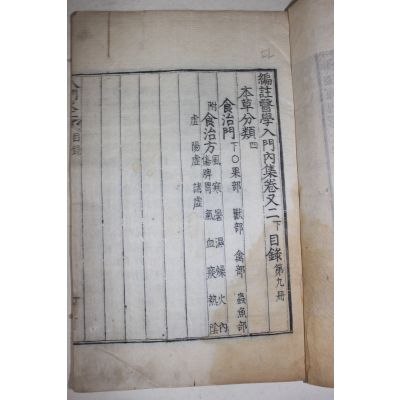 編註醫學入門內集卷又二下目錄 第九冊
本草分類四
食治門下○果部 獸部 禽部 蟲魚部
附食治方風 寒 暑 濕 燥 火 內
傷脾胃 氣 血 痰 熱 陰
虛 陽虛 諸虛
目錄